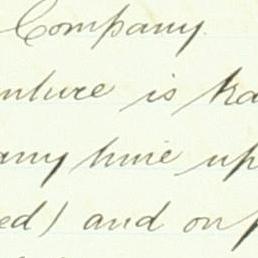 Company.
nture is
any time up
ed) and on